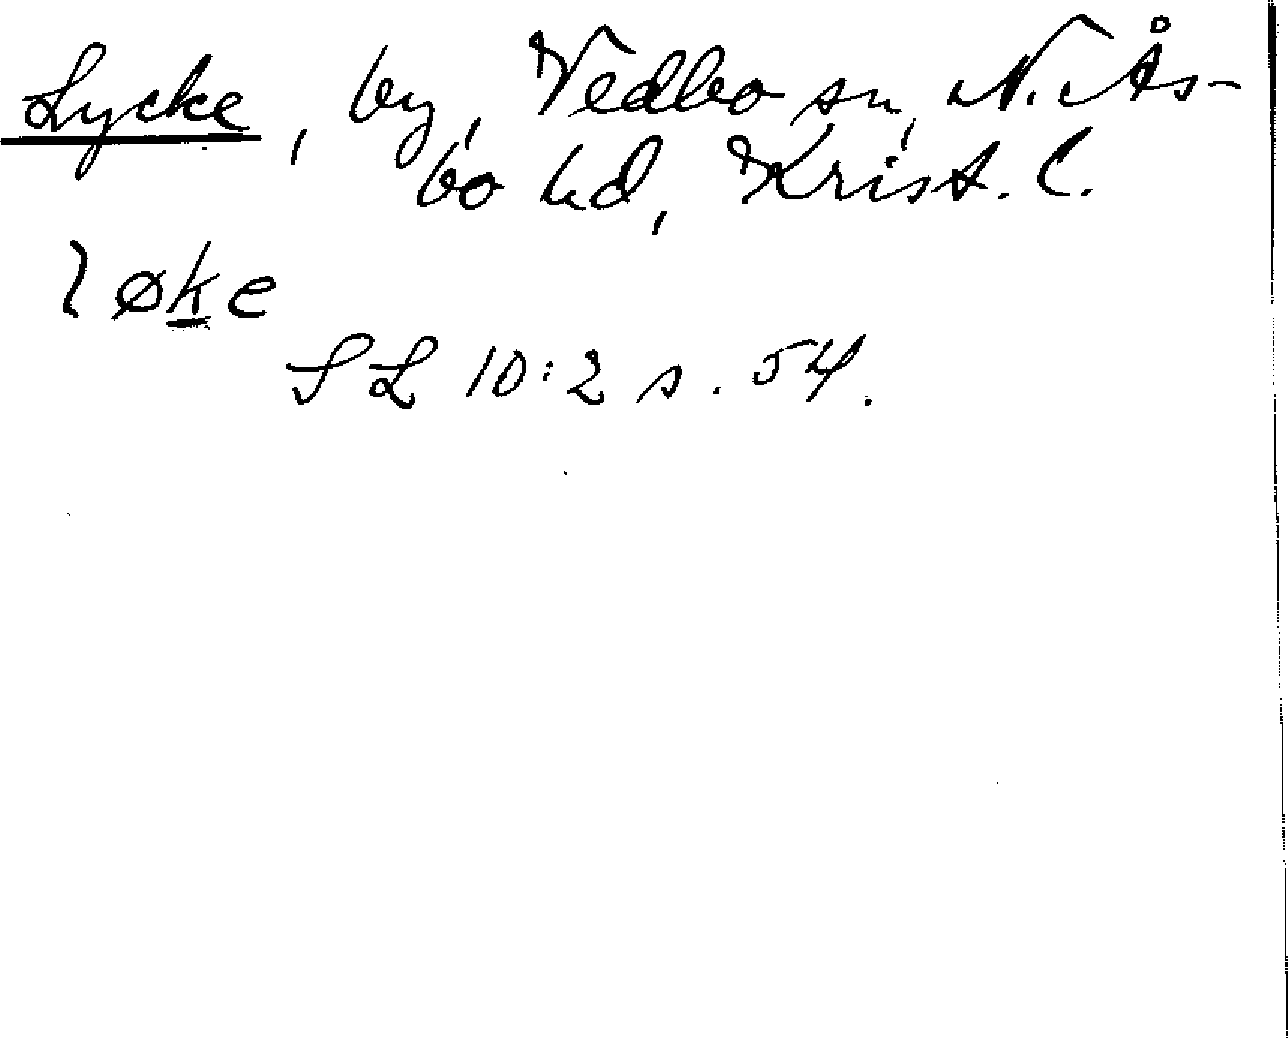 Lycke, by, Vedbo sn, N. Ås-
bo hd, Krist. l.
løke
SL 10:2 s. 54.